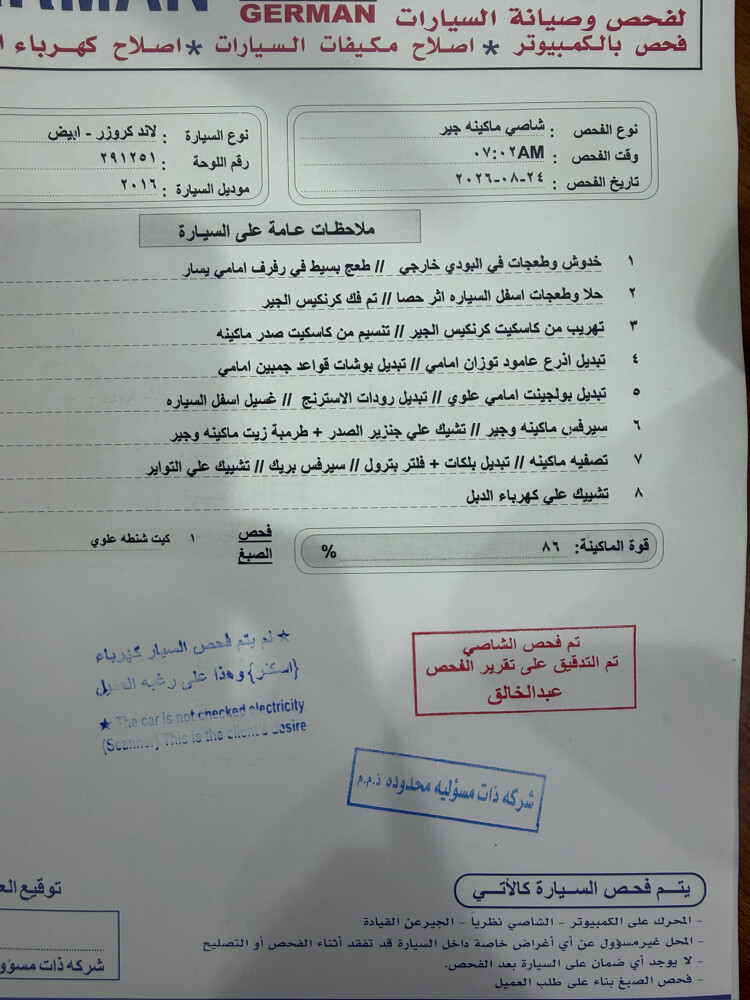 GERMAN
لفحص وصيانة السيارات
فحص بالكمبيوتر * اصلاح مكيفات السيارات * اصلاح كهرباء
نوع الفحص : شاصي ماكينه جير
وقت الفحص : ٠٧:٠٢AM
تاريخ الفحص : ٢٤-٠٨-٢٠٢٦
نوع السيارة : لاند كروزر - ابيض
رقم اللوحة : ٢٩١٢٥١
موديل السيارة : ٢٠١٦
ملاحظات عامة على السيارة
١ خدوش وطعجات في البودي خارجي // طعج بسيط في رفرف امامي يسار
٢ حلا وطعجات اسفل السياره اثر حصا // تم فك كرنكيس الجير
٣ تهريب من كاسكيت كرنكيس الجير // تنسيم من كاسكيت صدر ماكينه
٤ تبديل اذرع عامود توزان امامي // تبديل بوشات قواعد جمبين امامي
٥ تبديل بولجينت امامي علوي // تبديل رودات الاسترنج // غسيل اسفل السياره
٦ سيرفس ماكينه وجير // تشيك علي جنزير الصدر + طرمبة زيت ماكينه وجير
٧ تصفيه ماكينه // تبديل بلكات + فلتر بترول // سيرفس بريك // تشييك علي التواير
٨ تشييك علي كهرباء الدبل
قوة الماكينة: ٨٦ %
فحص الصبغ
١ كيت شنطه علوي
* لم يتم فحص السيار كهرباء
{اسكنر} وهذا على رغبه العميل
* The car is not checked electricity
(Scanner) This is the client's desire
تم فحص الشاصي
تم التدقيق على تقرير الفحص
عبدالخالق
شركه ذات مسؤليه محدوده ذ.م.م
يتم فحص السيارة كالأتي
- المحرك على الكمبيوتر - الشاصي نظرياً - الجير عن القيادة
- المحل غير مسؤول عن أي أغراض خاصة داخل السيارة قد تفقد أثناء الفحص أو التصليح
- لا يوجد أي ضمان على السيارة بعد الفحص.
- فحص الصبغ بناء على طلب العميل
توقيع
شركه ذات